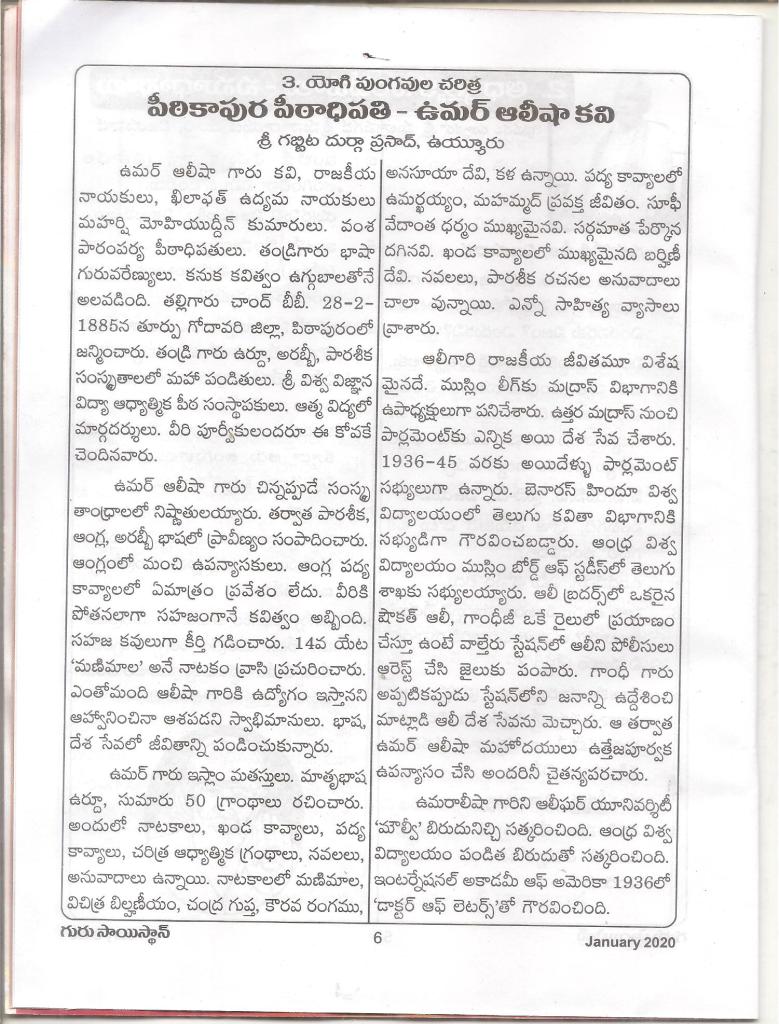 3. యోగి పుంగవుల చరిత్ర
పీఠికాపుర పీఠాధిపతి – ఉమర్ ఆలీషా కవి
శ్రీ గబ్బిట దుర్గా ప్రసాద్, ఉయ్యూరు
ఉమర్ ఆలీషా గారు కవి, రాజకీయ
నాయకులు, ఖిలాఫత్ ఉద్యమ నాయకులు
మహర్షి మోహియుద్దీన్ కుమారులు. వంశ
పారంపర్య పీఠాధిపతులు. తండ్రిగారు భాషా
గురువరేణ్యులు. కనుక కవిత్వం ఉగ్గుబాలతోనే
అలవడింది. తల్లిగారు చాంద్ బీబీ. 28-2-
1885న తూర్పు గోదావరి జిల్లా, పిఠాపురంలో
జన్మించారు. తండ్రి గారు ఉర్దూ, అరబ్బీ, పారశీక
సంస్కృతాలలో మహా పండితులు. శ్రీ విశ్వ విజ్ఞాన
విద్యా ఆధ్యాత్మిక పీఠ సంస్థాపకులు. ఆత్మ విద్యలో
మార్గదర్శులు. వీరి పూర్వీకులందరూ ఈ కోవకే
చెందినవారు.
ఉమర్ ఆలీషా గారు చిన్నప్పుడే సంస్కృ
తాంధ్రాలలో నిష్ణాతులయ్యారు. తర్వాత పారశీక,
ఆంగ్ల, అరబ్బీ భాషలో ప్రావీణ్యం సంపాదించారు.
ఆంగ్లంలో మంచి ఉపన్యాసకులు. ఆంగ్ల పద్య
కావ్యాలలో ఏమాత్రం ప్రవేశం లేదు. వీరికి
పోతనలాగా సహజంగానే కవిత్వం అబ్బింది.
సహజ కవులుగా కీర్తి గడించారు. 14వ యేట
'మణిమాల' అనే నాటకం వ్రాసి ప్రచురించారు.
ఎంతోమంది ఆలీషా గారికి ఉద్యోగం ఇస్తానని
ఆహ్వానించినా ఆశపడని స్వాభిమానులు. భాష,
దేశ సేవలో జీవితాన్ని పండించుకున్నారు.
ఉమర్ గారు ఇస్లాం మతస్తులు. మాతృభాష
ఉర్దూ, సుమారు 50 గ్రాంథాలు రచించారు.
అందులో నాటకాలు, ఖండ కావ్యాలు, పద్య
కావ్యాలు, చరిత్ర ఆధ్యాత్మిక గ్రంథాలు, నవలలు,
అనువాదాలు ఉన్నాయి. నాటకాలలో మణిమాల,
విచిత్ర బిల్హణీయం, చంద్ర గుప్త, కౌరవ రంగము,
అనసూయా దేవి, కళ ఉన్నాయి. పద్య కావ్యాలలో
ఉమర్ఖయ్యం, మహమ్మద్ ప్రవక్త జీవితం. సూఫీ
వేదాంత ధర్మం ముఖ్యమైనవి. సర్గమాత పేర్కొన
దగినవి. ఖండ కావ్యాలలో ముఖ్యమైనది బర్హిణీ
దేవి. నవలలు, పారశీక రచనల అనువాదాలు
చాలా వున్నాయి. ఎన్నో సాహిత్య వ్యాసాలు
వ్రాశారు.
ఆలీగారి రాజకీయ జీవితమూ విశేష
మైనదే. ముస్లిం లీగ్‌కు మద్రాస్ విభాగానికి
ఉపాధ్యక్షులుగా పనిచేశారు. ఉత్తర మద్రాస్ నుంచి
పార్లమెంట్‌కు ఎన్నిక అయి దేశ సేవ చేశారు.
1936-45 వరకు అయిదేళ్ళు పార్లమెంట్
సభ్యులుగా ఉన్నారు. బెనారస్ హిందూ విశ్వ
విద్యాలయంలో తెలుగు కవితా విభాగానికి
సభ్యుడిగా గౌరవించబడ్డారు. ఆంధ్ర విశ్వ
విద్యాలయం ముస్లిం బోర్డ్ ఆఫ్ స్టడీస్‌లో తెలుగు
శాఖకు సభ్యులయ్యారు. ఆలీ బ్రదర్స్‌లో ఒకరైన
షౌకత్ ఆలీ, గాంధీజీ ఒకే రైలులో ప్రయాణం
చేస్తూ ఉంటే వాల్తేరు స్టేషన్‌లో ఆలీని పోలీసులు
ఆరెస్ట్ చేసి జైలుకు పంపారు. గాంధీ గారు
అప్పటికప్పుడు స్టేషన్‌లోని జనాన్ని ఉద్దేశించి
మాట్లాడి ఆలీ దేశ సేవను మెచ్చారు. ఆ తర్వాత
ఉమర్ ఆలీషా మహోదయులు ఉత్తేజపూర్వక
ఉపన్యాసం చేసి అందరినీ చైతన్యపరచారు.
ఉమరాలీషా గారిని ఆలీఘర్ యూనివర్శిటీ
'మౌల్వీ' బిరుదునిచ్చి సత్కరించింది. ఆంధ్ర విశ్వ
విద్యాలయం పండిత బిరుదుతో సత్కరించింది.
ఇంటర్నేషనల్ అకాడమీ ఆఫ్ అమెరికా 1936లో
'డాక్టర్ ఆఫ్ లెటర్స్'తో గౌరవించింది.
గురు సాయిస్థాన్
6
January 2020